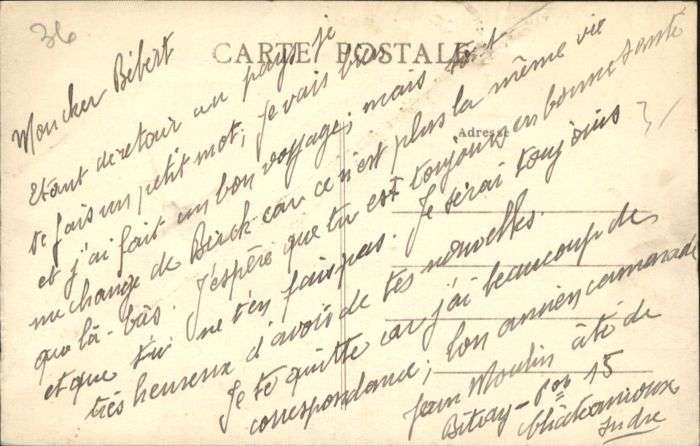 36
CARTE POSTALE
Adresse
Mon cher Bébert
Etant de retour au pays je
te fais un petit mot; je vais bien
et j'ai fait un bon voyage; mais tout
me change de Berck car ce n'est plus la même vie
que là-bàs. J'espère que tu est toujours en bonne santé
et que tu ne t'en fais pas. Je serai toujours
très heureux d'avois de tes nouvelles.
Je te quitte car j'ai beaucoup de
correspondance; ton ancien camarade
Jean Moulin cité de
Bitray - 15
Châteauroux
Indre